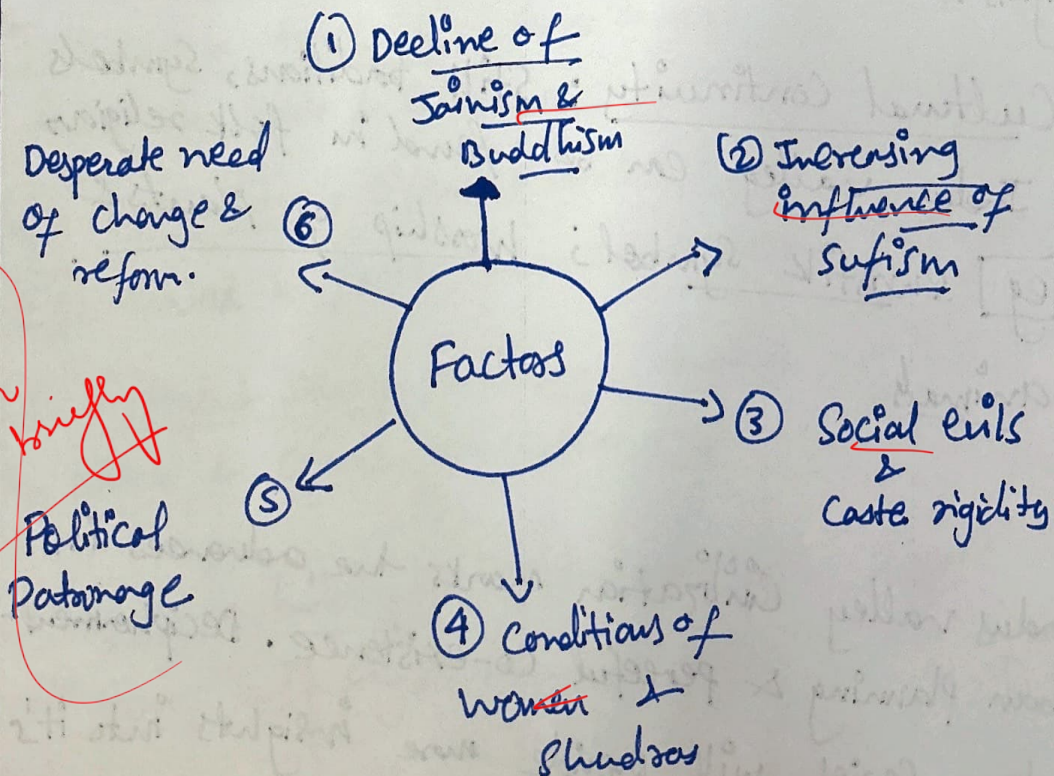 ① Decline of
Jainism &
Buddhism
② Increasing
influence of
Sufism
③ Social evils
&
Caste rigidity
④ Conditions of
women &
Shudras
⑤
Political
Patronage
⑥
Desperate need
of change &
reform.
Factors
briefly